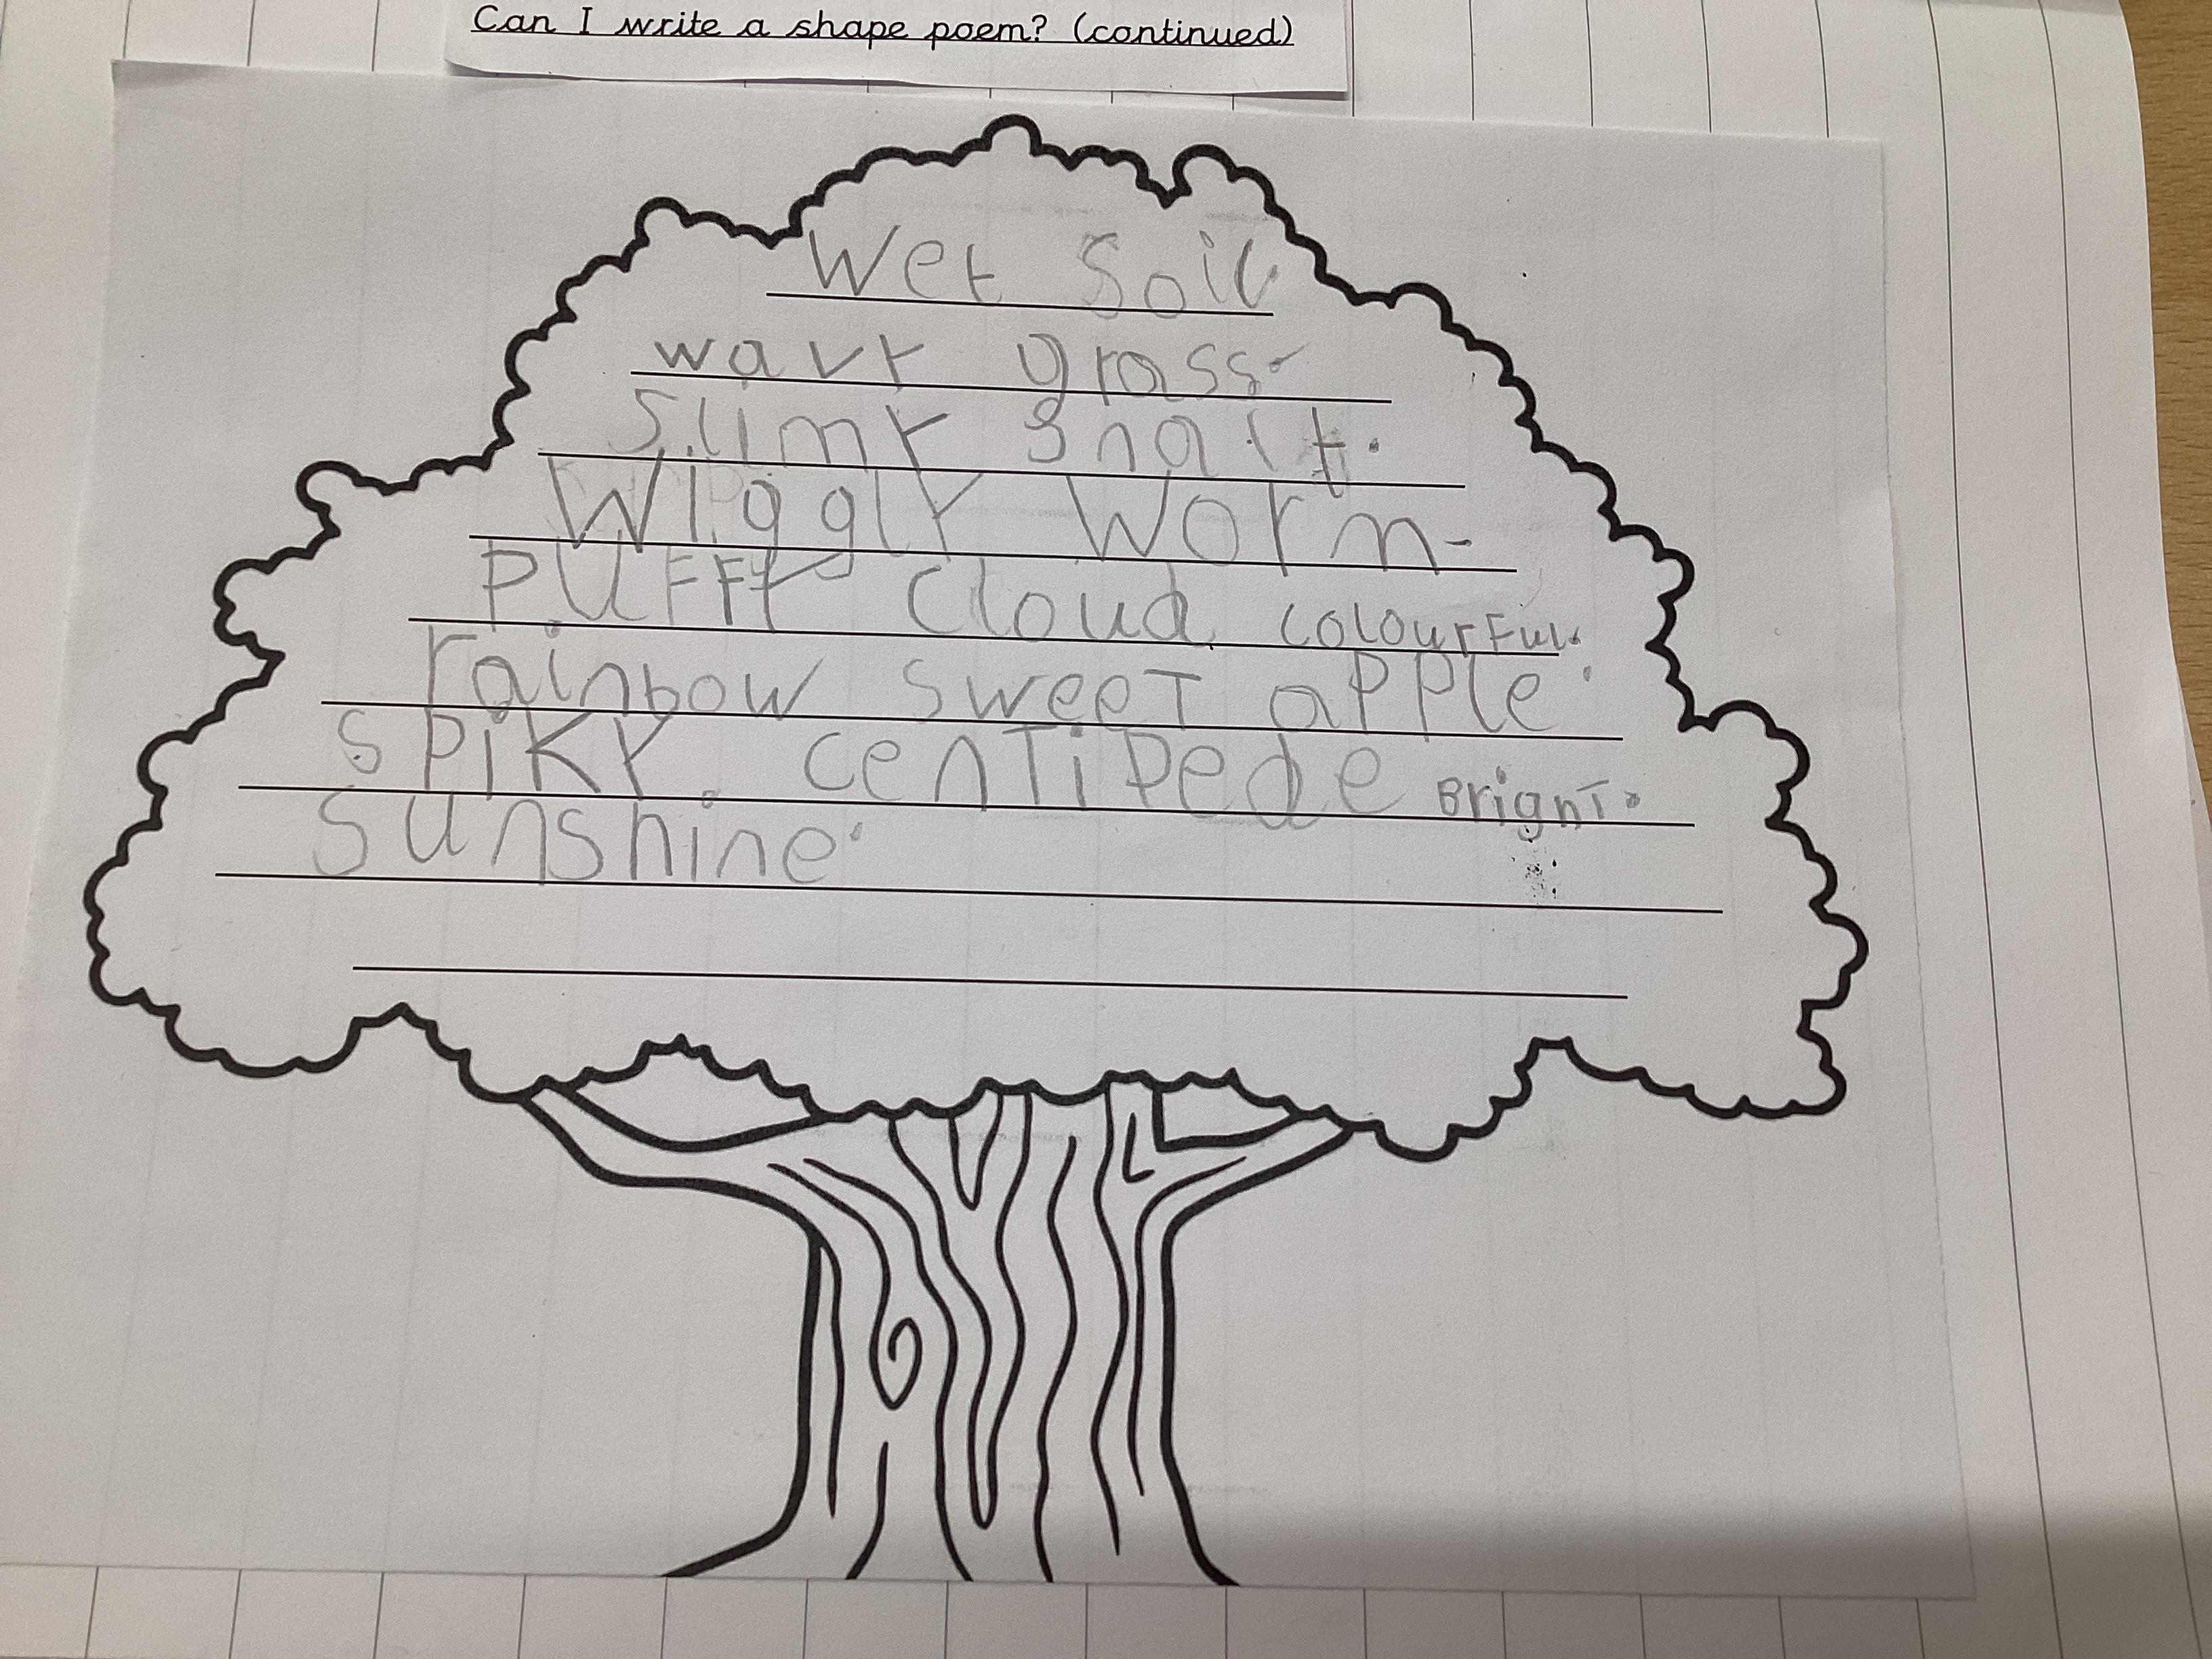 Can I write a shape poem? (continued)
Wet Soil
wavy grass.
Slimy snail.
Wiggly Worm.
PUFFY Cloud. colourFul.
rainbow sweet apple.
sPiKY. cenTiPede BrighT.
Sunshine.